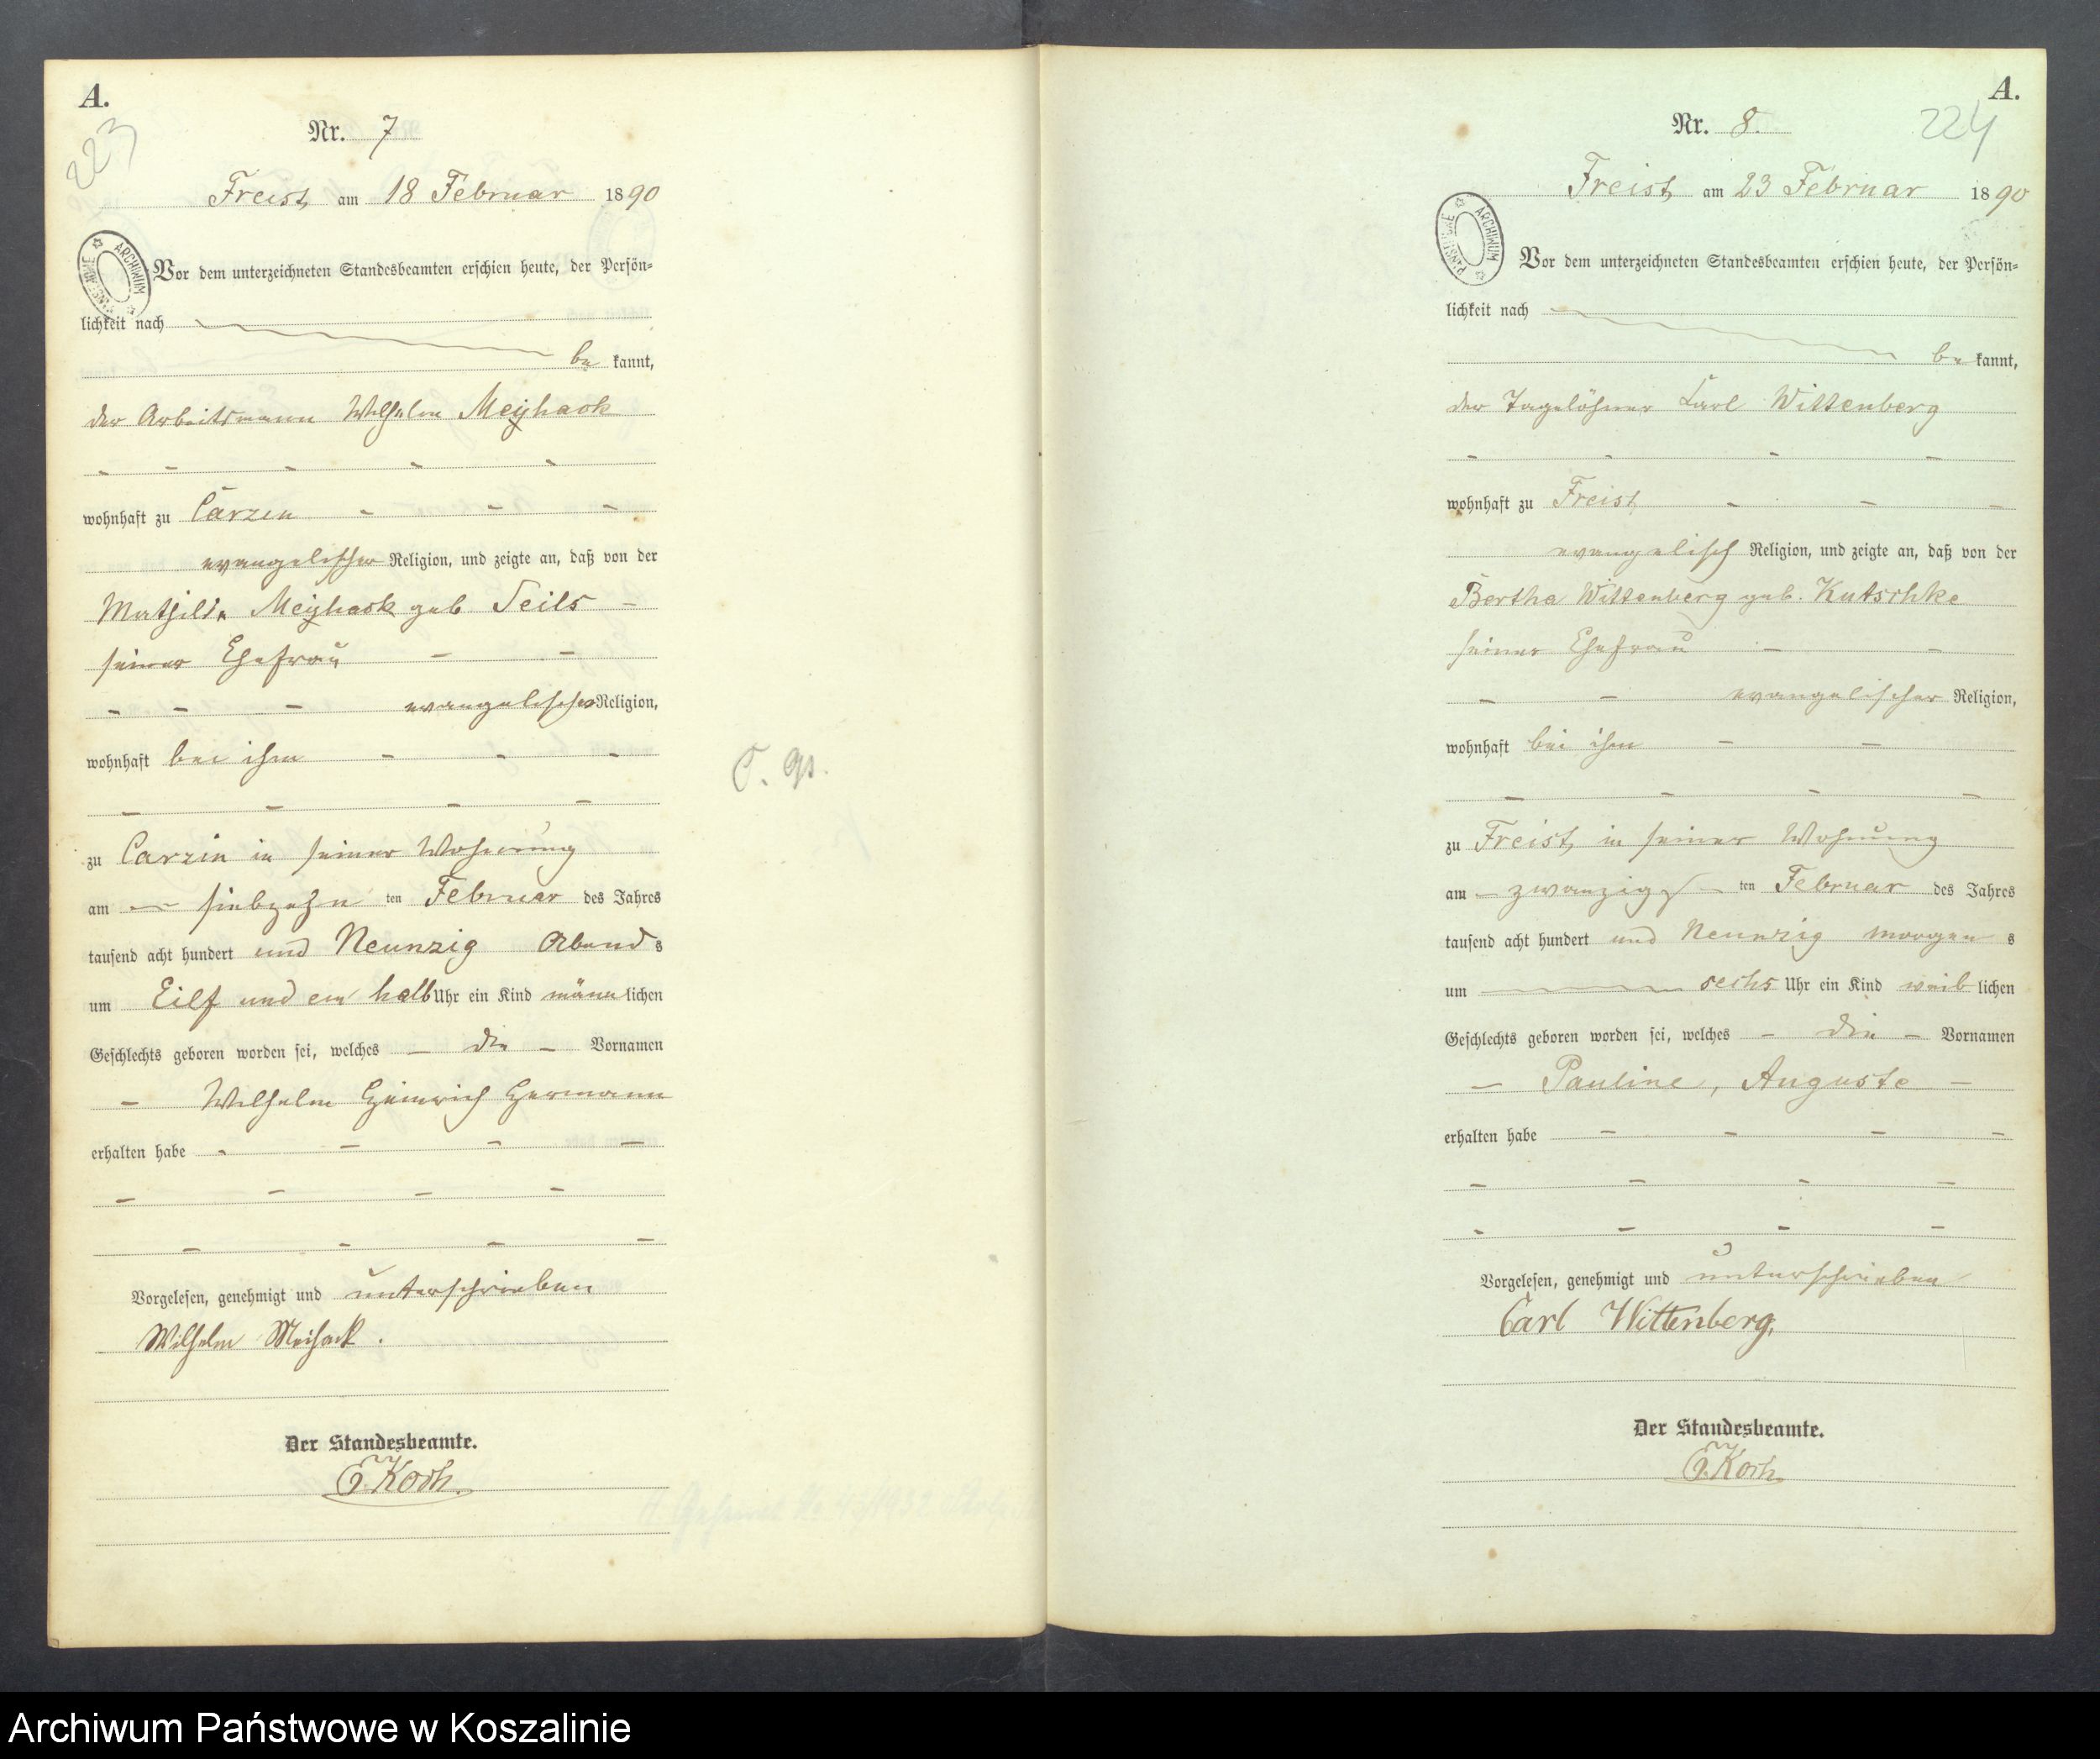 A.
223
Nr. 7
Freist, am 18 Februar 1890
ARCHIWUM PAŃSTWOWE
Vor dem unterzeichneten Standesbeamten erschien heute, der Persön=
lichkeit nach
be kannt,
der Arbeitsmann Wilhelm Meÿhack
wohnhaft zu Carzin
evangelischer Religion, und zeigte an, daß von der
Mathilde Meÿhack geb Seils
seiner Ehefrau
evangelischer Religion,
wohnhaft bei ihm
zu Carzin in seiner Wohnung
am siebzehn ten Februar des Jahres
tausend acht hundert und Neunzig Abend s
um Eilf und ein halb Uhr ein Kind männ lichen
Geschlechts geboren worden sei, welches die Vornamen
Wilhelm Heinrich Hermann
erhalten habe
Vorgelesen, genehmigt und unterschrieben
Wilhelm Meihack.
Der Standesbeamte.
E. Koch.
A.
224
Nr. 8.
Freist, am 23 Februar 1890
ARCHIWUM PAŃSTWOWE
Vor dem unterzeichneten Standesbeamten erschien heute, der Persön=
lichkeit nach
be kannt,
der Tagelöhner Carl Wittenberg
wohnhaft zu Freist
evangelisch Religion, und zeigte an, daß von der
Bertha Wittenberg geb. Kutschke
seiner Ehefrau
evangelischer Religion,
wohnhaft bei ihm
zu Freist, in seiner Wohnung
am zwanzigs ten Februar des Jahres
tausend acht hundert und Neunzig morgen s
um sechs Uhr ein Kind weib lichen
Geschlechts geboren worden sei, welches die Vornamen
Pauline, Auguste
erhalten habe
Vorgelesen, genehmigt und unterschrieben
Carl Wittenberg,
Der Standesbeamte.
E. Koch.
Archiwum Państwowe w Koszalinie